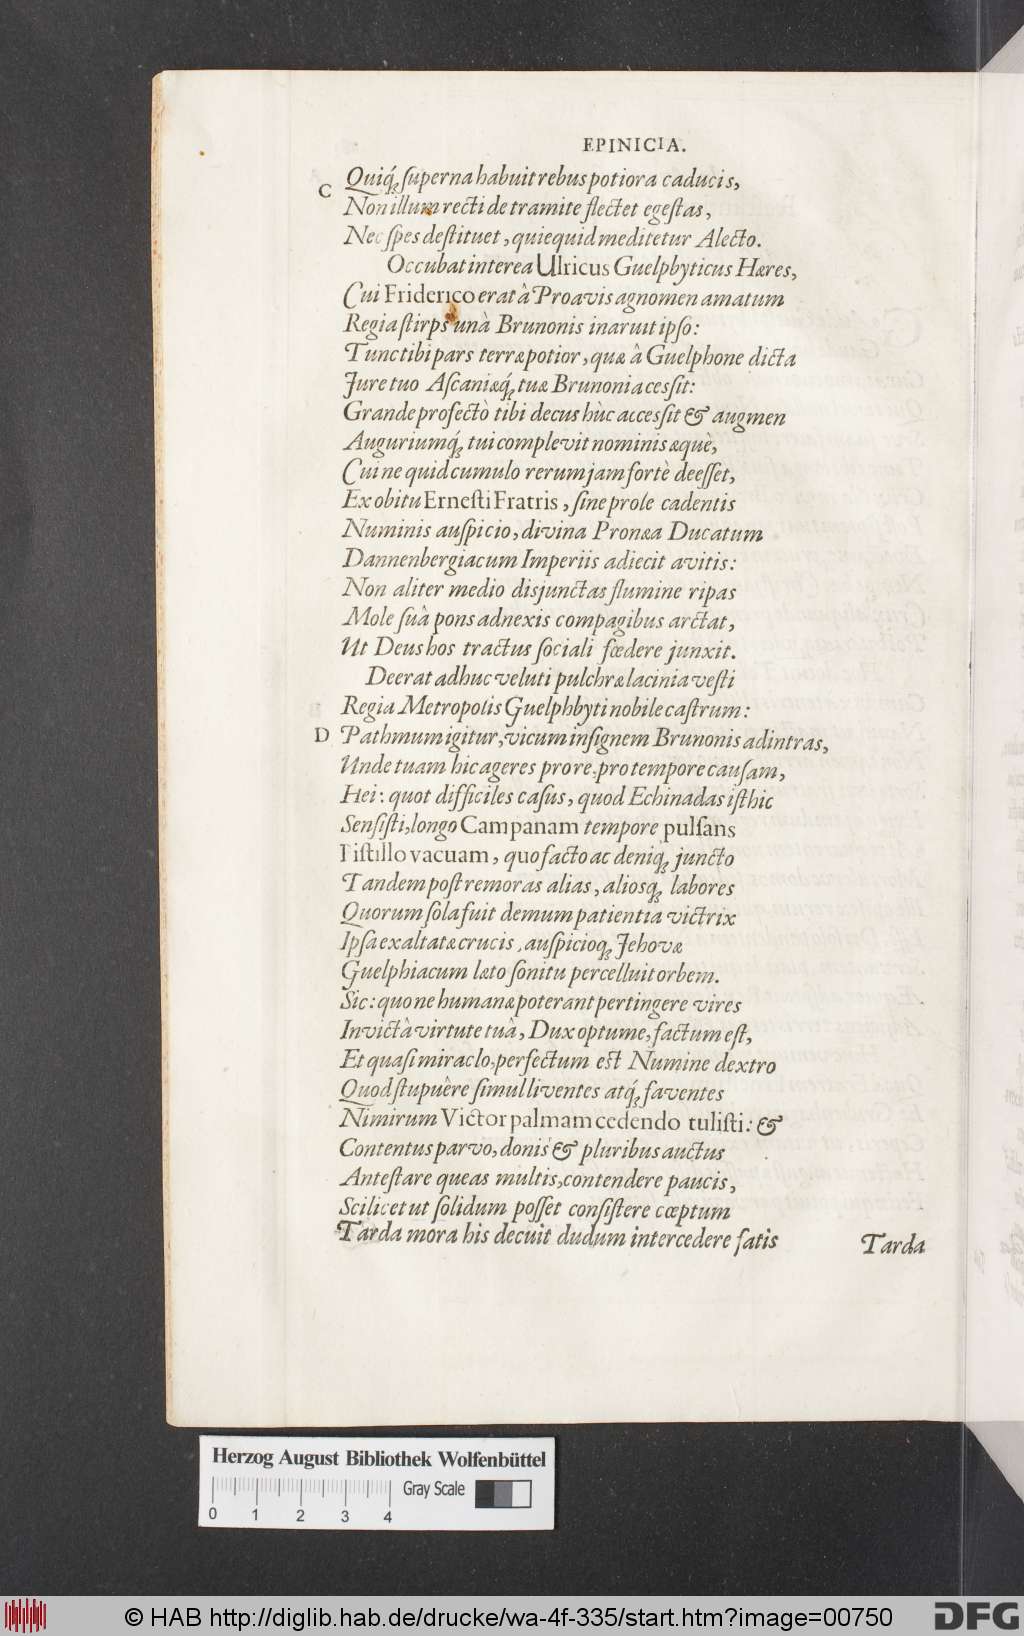 EPINICIA.
C Quiq́; ſuperna habuit rebus potiora caducis,
Non illum recti de tramite flectet egeſtas,
Nec ſpes deſtituet, quiequid meditetur Alecto.
Occubat interea Ulricus Guelpbyticus Hæres,
Cui Friderico erat â Proavis agnomen amatum
Regia ſtirps unà Brunonis inaruit ipſo:
Tunc tibi pars terræ potior, quæ â Guelphone dicta
Jure tuo Aſcaniæq́; tuæ Brunonia cesſit:
Grande profectò tibi decus hùc accesſit & augmen
Auguriumq́; tui complevit nominis æquè,
Cui ne quid cumulo rerum jam fortè deeſſet,
Ex obitu Erneſti Fratris, ſine prole cadentis
Numinis auſpicio, divina Pronæa Ducatum
Dannenbergiacum Imperiis adiecit avitis:
Non aliter medio disjunctas flumine ripas
Mole ſuâ pons adnexis compagibus arctat,
Ut Deus hos tractus ſociali fœdere junxit.
Deerat adhuc veluti pulchræ lacinia veſti
Regia Metropolis Guelphbyti nobile caſtrum:
D Pathmum igitur, vicum inſignem Brunonis adintras,
Unde tuam hic ageres pro re, pro tempore cauſam,
Hei: quot difficiles caſus, quod Echinadas iſthic
Senſiſti, longo Campanam tempore pulſans
Piſtillo vacuam, quo facto ac deniq; juncto
Tandem poſt remoras alias, aliosq; labores
Quorum ſola fuit demum patientia victrix
Ipſa exaltatæ crucis, auſpicioq; Jehovæ
Guelphiacum læto ſonitu percelluit orbem.
Sic: quo ne humanæ poterant pertingere vires
Invictâ virtute tuâ, Dux optume, factum eſt,
Et quaſi miraclo, perfectum est Numine dextro
Quod ſtupuêre ſimul liventes atq́; faventes
Nimirum Victor palmam cedendo tuliſti: &
Contentus parvo, donis & pluribus auctus
Anteſtare queas multis, contendere paucis,
Scilicet ut ſolidum poſſet conſiſtere cœptum
Tarda mora his decuit dudum intercedere fatis
Tarda
Herzog August Bibliothek Wolfenbüttel
Gray Scale
0 1 2 3 4
© HAB http://diglib.hab.de/drucke/wa-4f-335/start.htm?image=00750
DFG